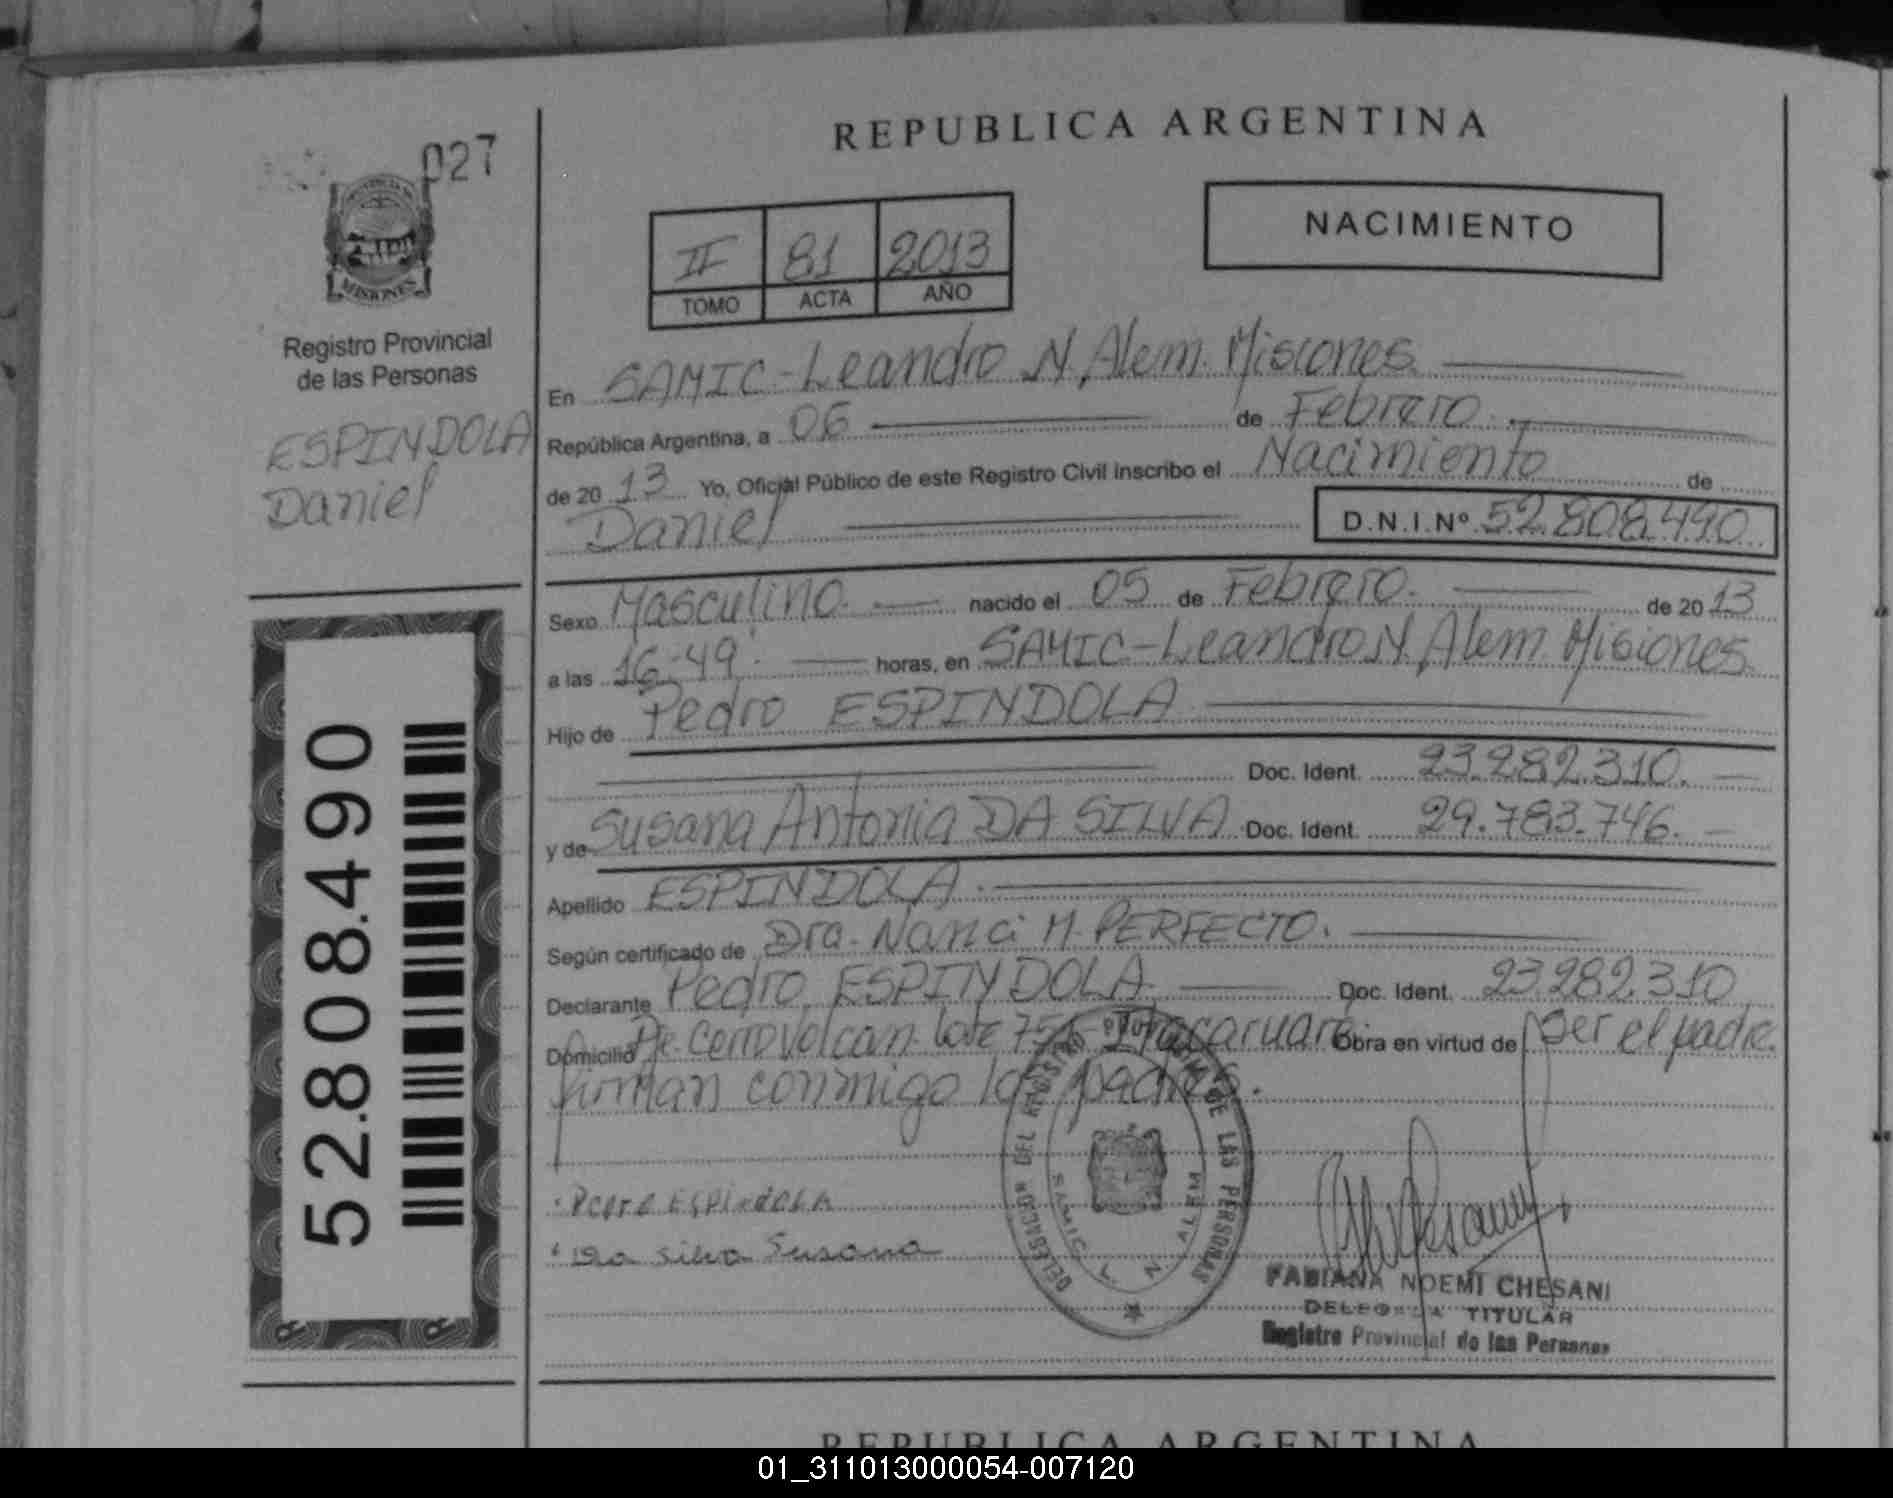 027
PROVINCIA DE
MISIONES
Registro Provincial
de las Personas
ESPINDOLA
Daniel
52.808.490
REPUBLICA ARGENTINA
II 81 2013
TOMO ACTA AÑO
NACIMIENTO
En SAMIC-Leandro N. Alem. Misiones.
República Argentina, a 06 de Febrero.
de 20 13 Yo, Oficial Público de este Registro Civil inscribo el Nacimiento de
Daniel D.N.I.Nº 52.808.490
Sexo Masculino. nacido el 05 de Febrero. de 20 13
a las 16:49'. horas, en SAMIC-Leandro N. Alem. Misiones.
Hijo de Pedro ESPINDOLA
Doc. Ident. 23.282.310.
y de Susana Antonia DA SILVA Doc. Ident. 29.783.746.
Apellido ESPINDOLA.
Según certificado de Dra. Nanci M. PERFECTO.
Declarante Pedro ESPINDOLA Doc. Ident. 23.282.310
Domicilio Pje. Cerro Volcan. Lote 75 Itacaruaré Obra en virtud de ser el padre.
firman conmigo los padres.
Pedro ESPINDOLA
Da Silva Susana
DELEGACION DEL REGISTRO PROVINCIAL DE LAS PERSONAS
SAMIC L. N. ALEM
FABIANA NOEMI CHESANI
DELEGADA TITULAR
Registro Provincial de las Personas
REPUBLICA ARGENTINA
01_311013000054-007120